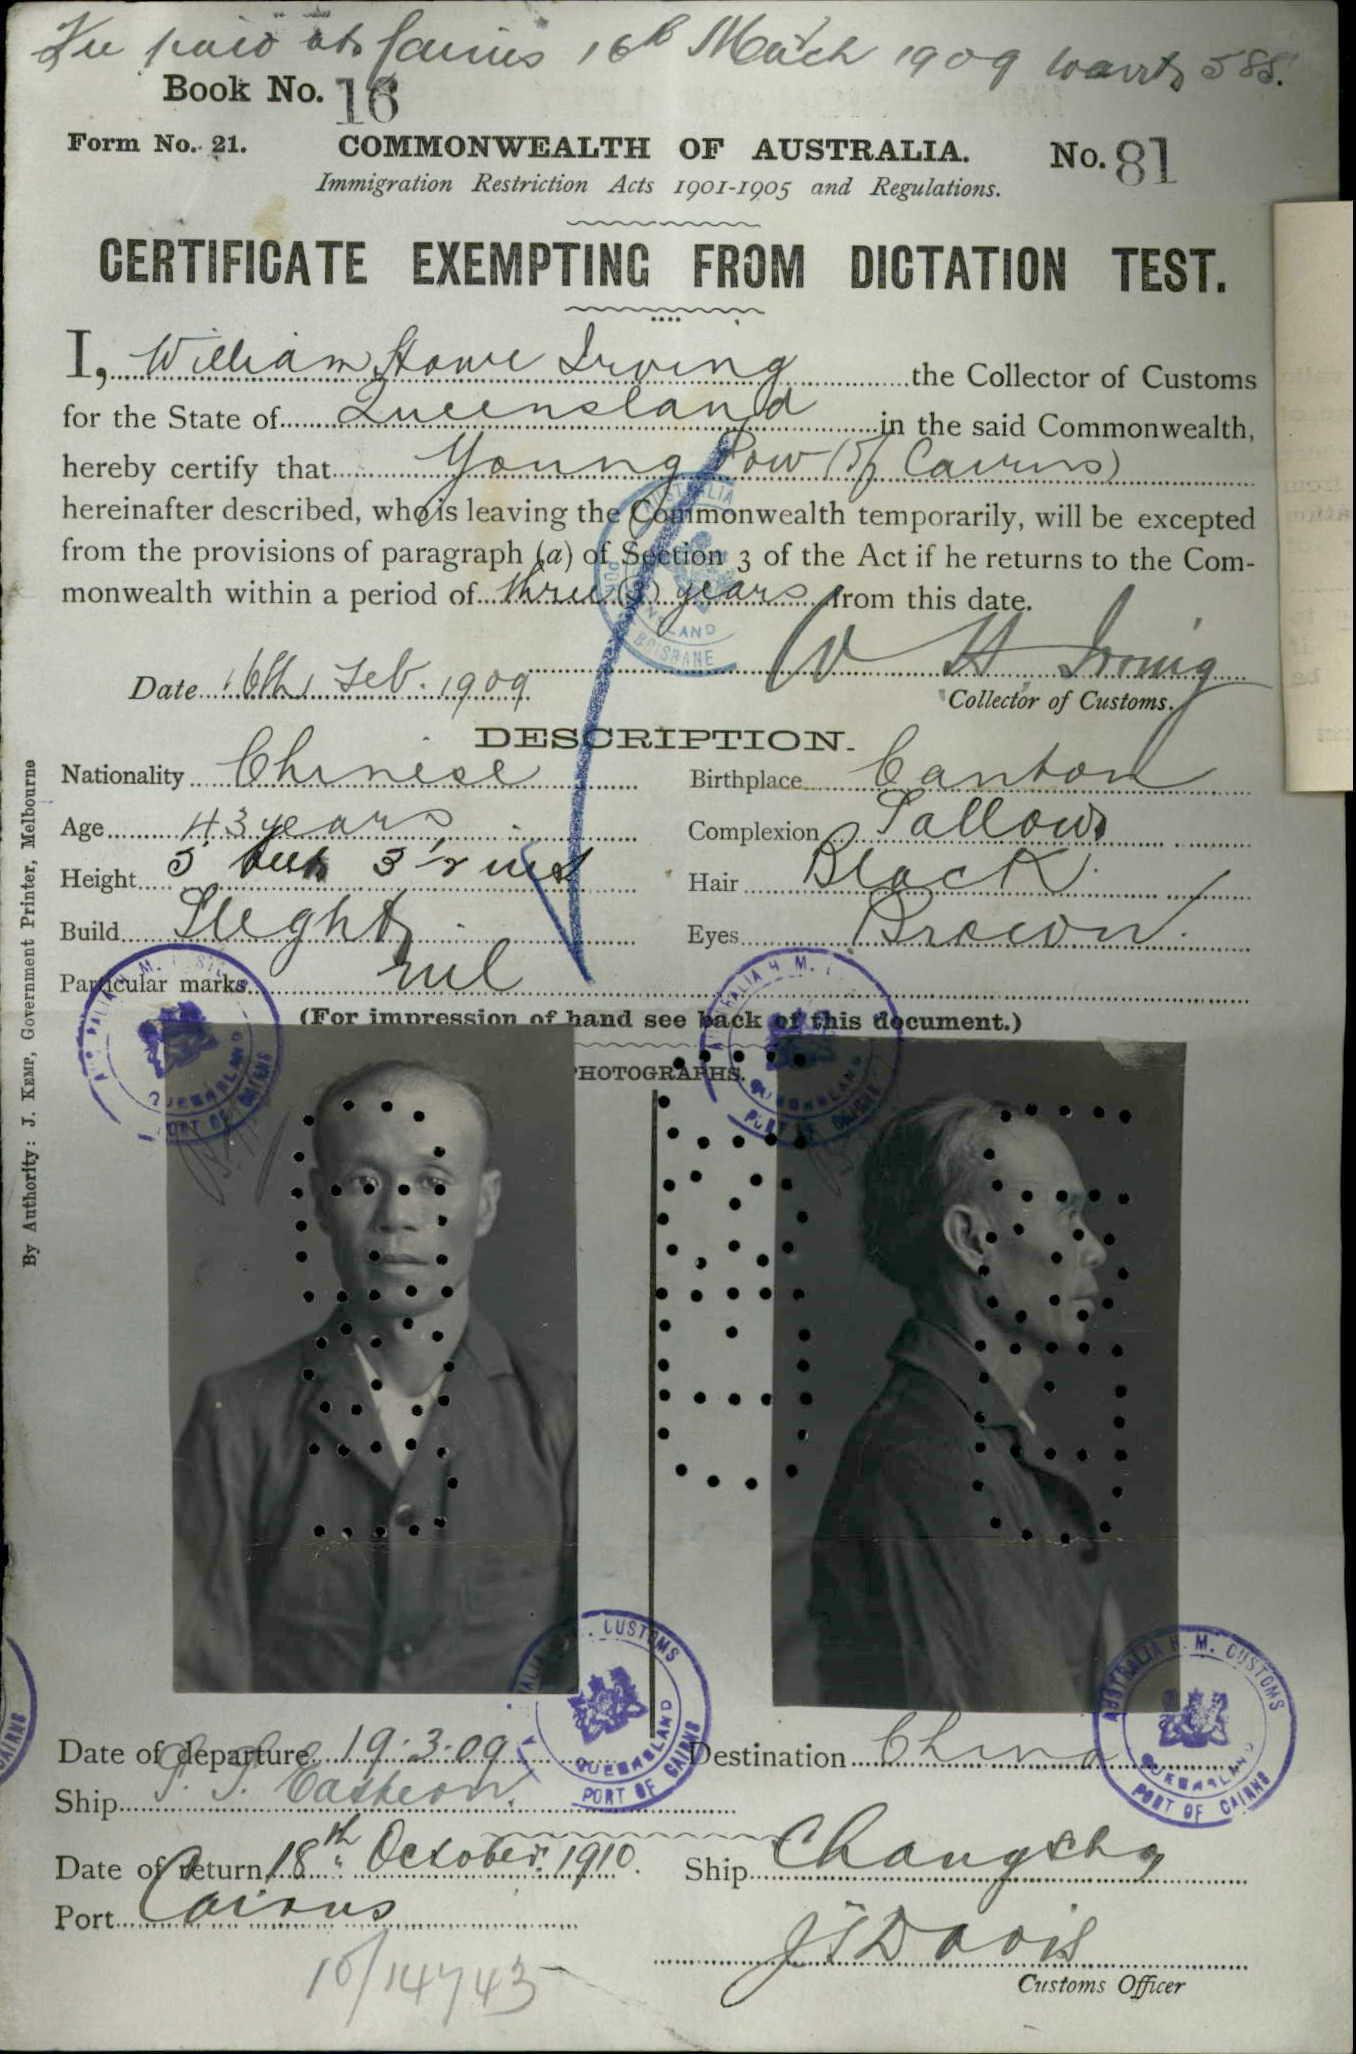 Fee paid at Cairns 16th March 1909 warrt 588.
Book No. 16
Form No. 21. COMMONWEALTH OF AUSTRALIA. No. 81
Immigration Restriction Acts 1901-1905 and Regulations.
CERTIFICATE EXEMPTING FROM DICTATION TEST.
I, William Howe Irving the Collector of Customs
for the State of Queensland in the said Commonwealth,
hereby certify that Young Pow (of Cairns)
hereinafter described, who is leaving the Commonwealth temporarily, will be excepted
from the provisions of paragraph (a) of Section 3 of the Act if he returns to the Com-
monwealth within a period of three (3) years from this date.
W H Irving
Date 16th Feb. 1909
Collector of Customs.
DESCRIPTION.
Nationality Chinese Birthplace Canton
Age 43 years Complexion Sallow
Height 5 feet 3 1/2 ins Hair Black
Build Slight Eyes Brown
Particular marks nil
(For impression of hand see back of this document.)
PHOTOGRAPHS.
By Authority: J. KEMP, Government Printer, Melbourne
AUSTRALIA H. M. CUSTOMS
QUEENSLAND
PORT OF CAIRNS
Date of departure 19.3.09 Destination China
Ship S. S. Eastern.
Date of return 18th October 1910. Ship Changsha
Port Cairns
J T Davis
Customs Officer
10/14743